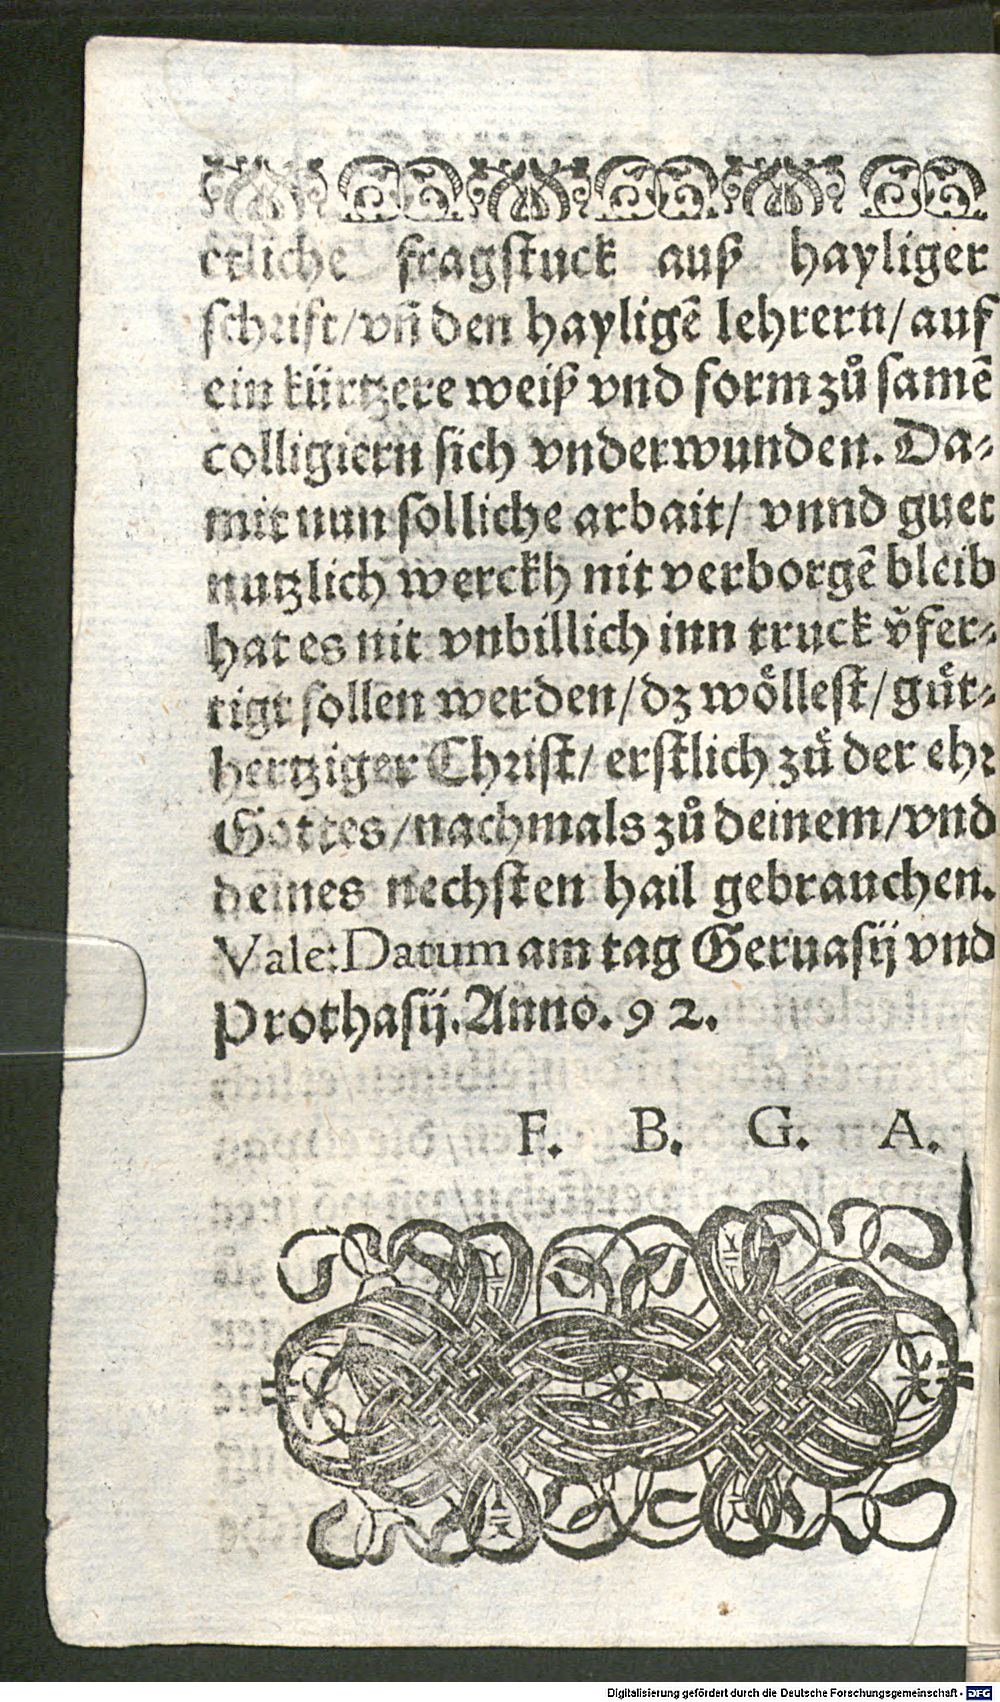 etliche fragstuck auß hayliger
schrift/vn̄ den hayligē lehrern/auf
ein kürtzere weiß vnd form zů samē
colligiern sich vnderwunden. Da⸗
mit nun solliche arbait/ vnnd guet
nutzlich werckh nit verborgē bleib
hat es nit vnbillich inn truck v̄fer⸗
tigt sollen werden/dz wöllest/gůt⸗
hertziger Christ/ erstlich zů der ehr
Gottes/nachmals zů deinem/vnd
deines nechsten hail gebrauchen.
Vale: Datum am tag Geruasij vnd
Prothasij. Anno. 92.
F. B. G. A.
Digitalisierung gefördert durch die Deutsche Forschungsgemeinschaft - DFG